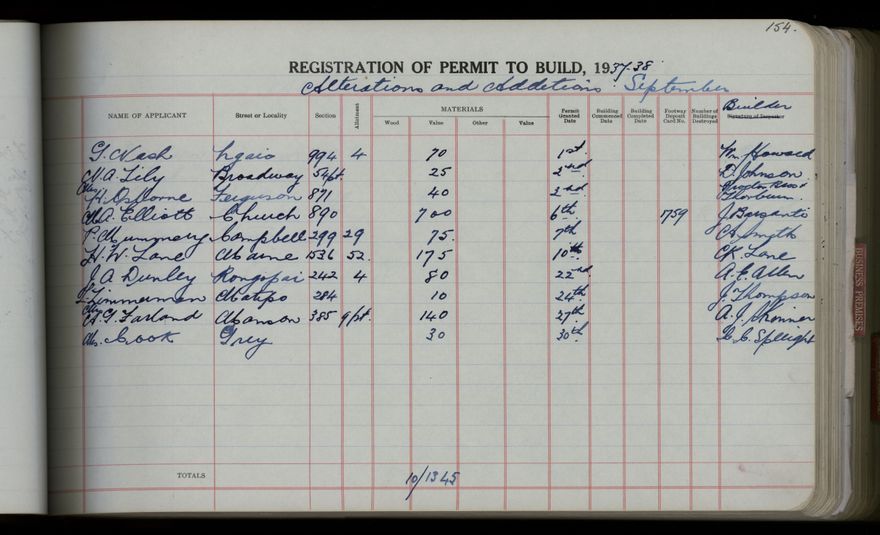 154.
REGISTRATION OF PERMIT TO BUILD, 1937-38
Alterations and Additions September
NAME OF APPLICANT Street or Locality Section Allotment MATERIALS Wood Value Other Value Permit Granted Date Building Commenced Date Building Completed Date Footway Deposit Card No. Number of Buildings Destroyed Builder Signature of Depositor
G. Nash Ngaio 994 4 70 1st. Wm Howard
A. Lily Broadway 54pt. 25 2nd D. Johnson
H. Osborne Ferguson 871 40 2nd Thorburn
A. Elliott Church 890 700 6th 1759 J. Barsanti
P. Mummery Campbell 299 29 75. 7th Smith
H. W. Lane Maine 1536 52 175 10th Lane
J. A. Dunley Rongopai 242 4 80 22nd A. E. Allen
Zimmerman Matipo 284 10 24th J. Thompson
G. Farland Manson 385 9pt. 140 27th A. J. Skonner
Mrs. Cook Grey 30 30th C. C. Spleight
TOTALS 10/1345
BUSINESS PREMISES